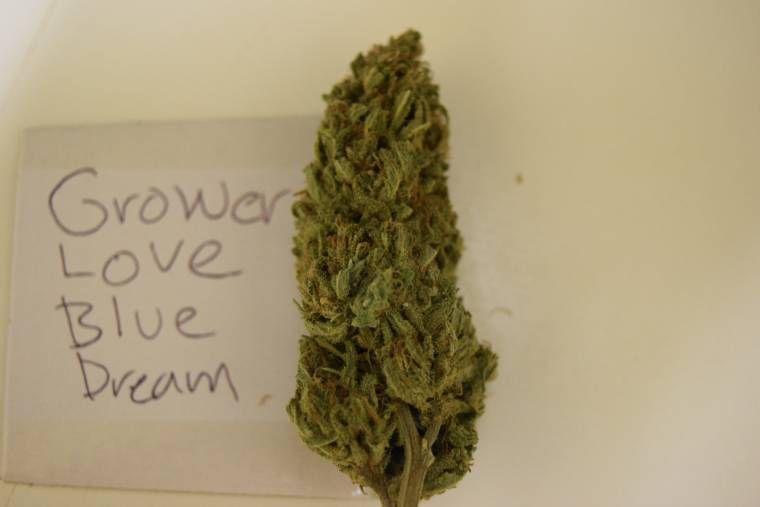 Grower
Love
Blue
Dream